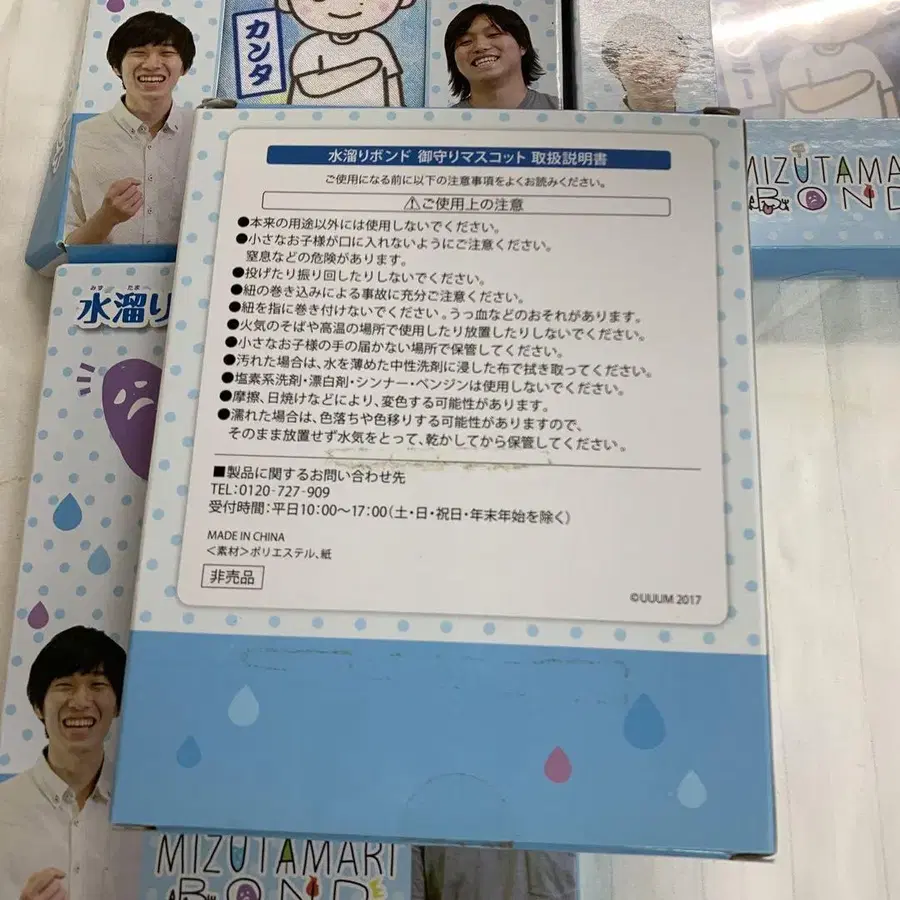 カンタ
MIZUTAMA
BOND
みず たま
水溜り
水溜りボンド 御守りマスコット 取扱説明書
ご使用になる前に以下の注意事項をよくお読みください。
⚠ご使用上の注意
●本来の用途以外には使用しないでください。
●小さなお子様が口に入れないようにご注意ください。
窒息などの危険があります。
●投げたり振り回したりしないでください。
●紐の巻き込みによる事故に充分ご注意ください。
●紐を指に巻き付けないでください。うっ血などのおそれがあります。
●火気のそばや高温の場所で使用したり放置したりしないでください。
●小さなお子様の手の届かない場所で保管してください。
●汚れた場合は、水を薄めた中性洗剤に浸した布で拭き取ってください。
●塩素系洗剤・漂白剤・シンナー・ベンジンは使用しないでください。
●摩擦、日焼けなどにより、変色する可能性があります。
●濡れた場合は、色落ちや色移りする可能性がありますので、
そのまま放置せず水気をとって、乾かしてから保管してください。
■製品に関するお問い合わせ先
TEL:0120-727-909
受付時間:平日10:00〜17:00(土・日・祝日・年末年始を除く)
MADE IN CHINA
<素材>ポリエステル、紙
非売品
©UUUM 2017
MIZUTAMARI
BOND